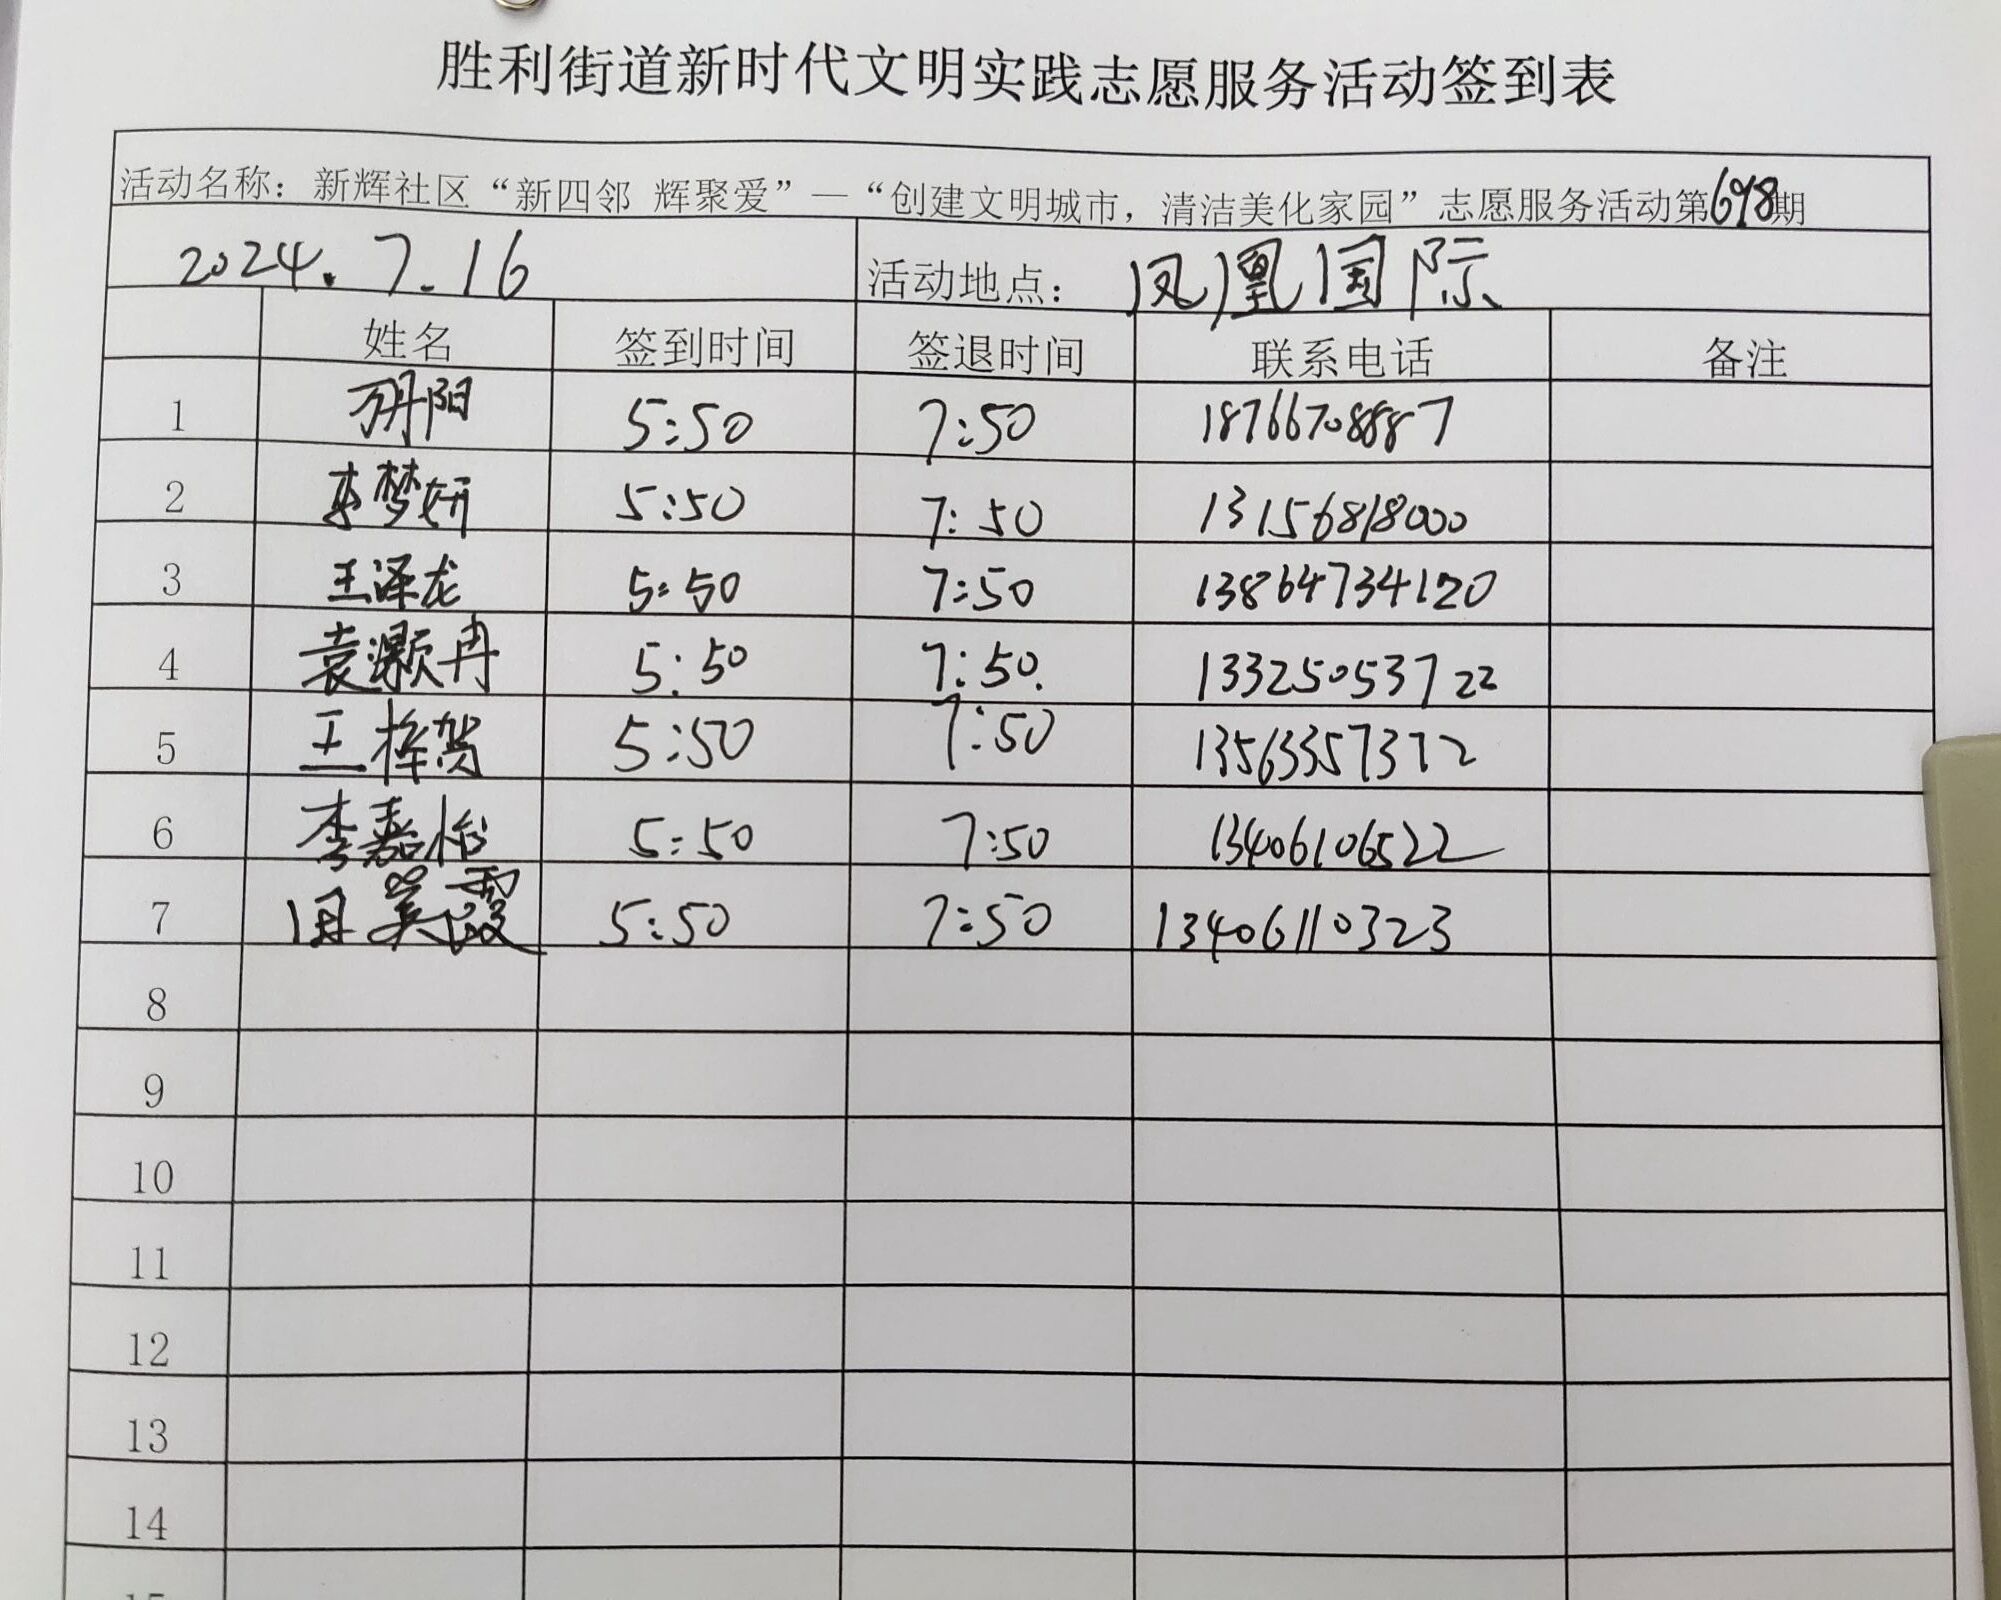 胜利街道新时代文明实践志愿服务活动签到表
活动名称：新辉社区“新四邻 辉聚爱”—“创建文明城市，清洁美化家园”志愿服务活动第698期
2024.7.16 活动地点：凤凰国际
姓名 签到时间 签退时间 联系电话 备注
1 万丹阳 5:50 7:50 18766708887
2 李梦妍 5:50 7:50 13156818000
3 王泽龙 5:50 7:50 13864734120
4 袁灏冉 5:50 7:50. 13325053722
5 王梓贺 5:50 7:50 13563357372
6 李嘉怡 5:50 7:50 13406106522
7 田美霞 5:50 7:50 13406110323
8
9
10
11
12
13
14
15